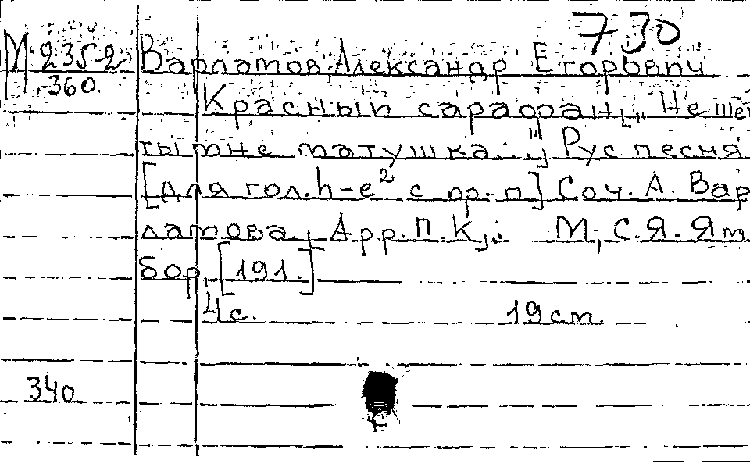 730
М 235-2 Варламов Александр Егорович
360
Красный сарафан „Не шей
ты мне матушка..." Рус песня
[для гол. h-e² с ф-п] Соч. А. Вар
ламова, Арр. П. К,. М, С. Я. Ям
бор, [191.]
4 с. 19 cm
340